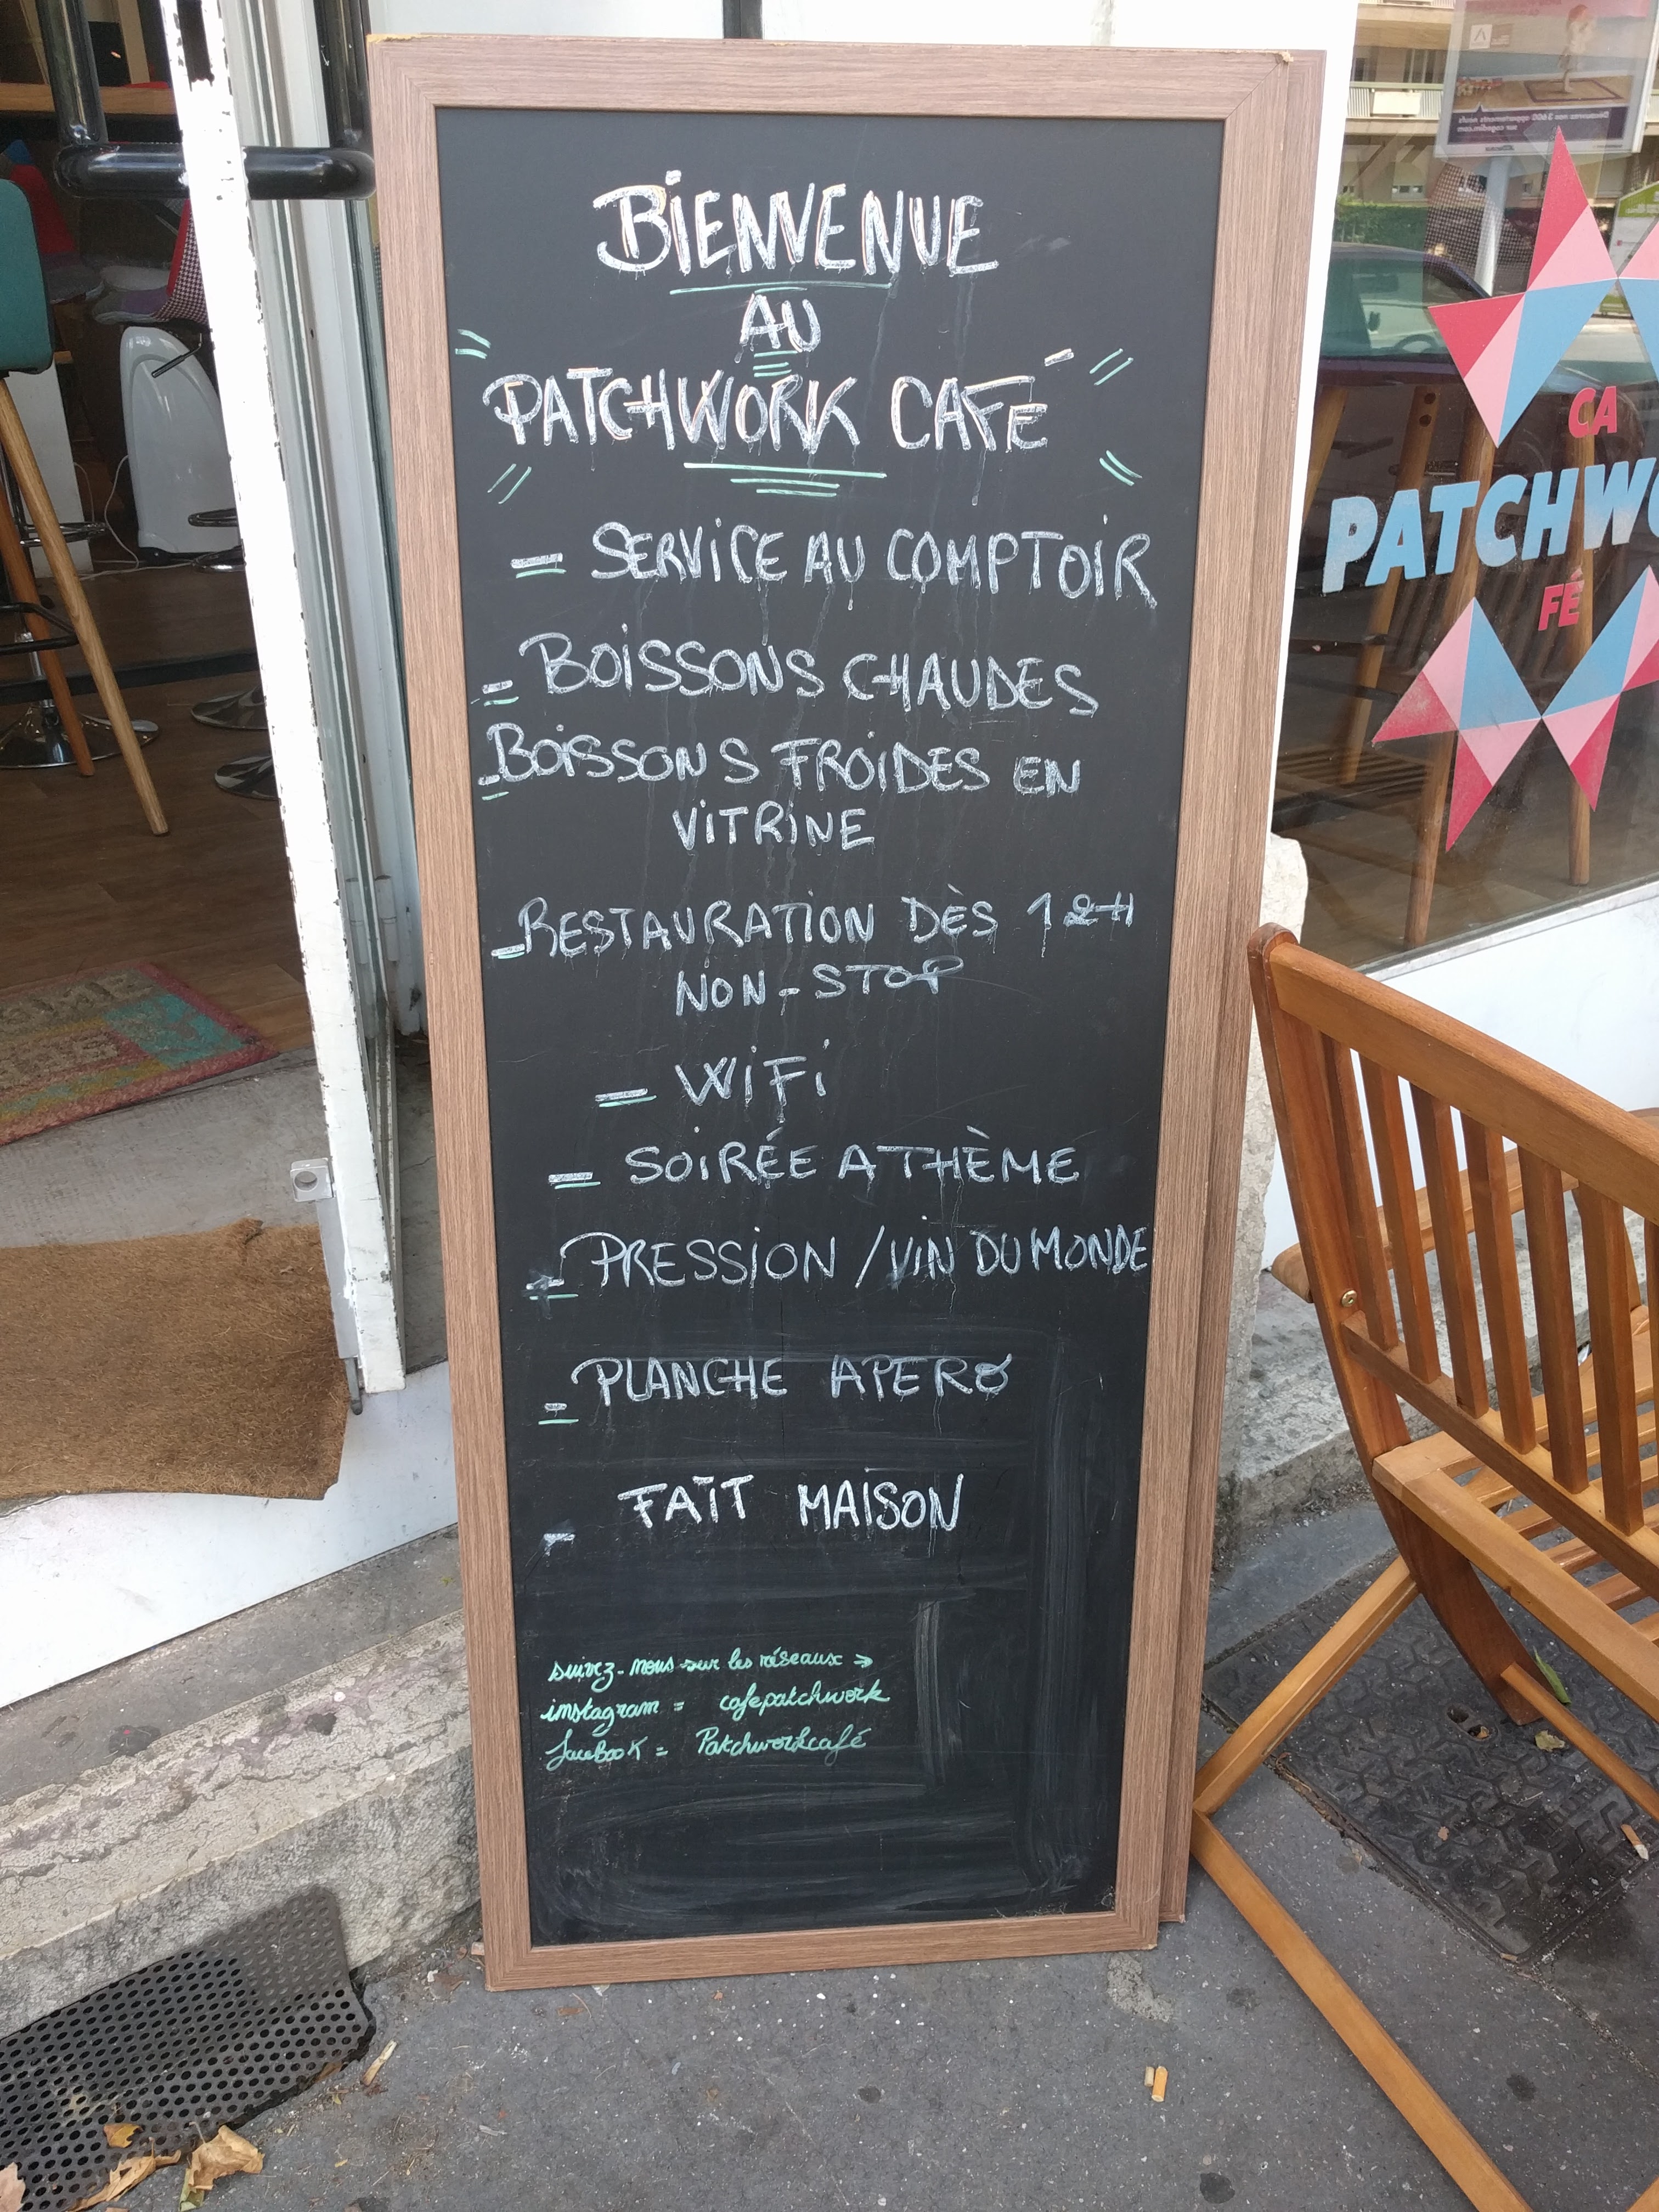 BIENVENUE
AU
PATCHWORK CAFÉ
- SERVICE AU COMPTOIR
- BOISSONS CHAUDES
- BOISSONS FROIDES EN
VITRINE
- RESTAURATION DÈS 12H
NON-STOP
- WIFI
- SOIRÉE A THÈME
- PRESSION / VIN DU MONDE
- PLANCHE APERO
- FAIT MAISON
suivez-nous sur les réseaux →
instagram = cafepatchwork
faceBooK = Patchworkcafé
CA
PATCHWO
FÉ
Découvrez nos 3600 appartements neufs
sur cogedim.com